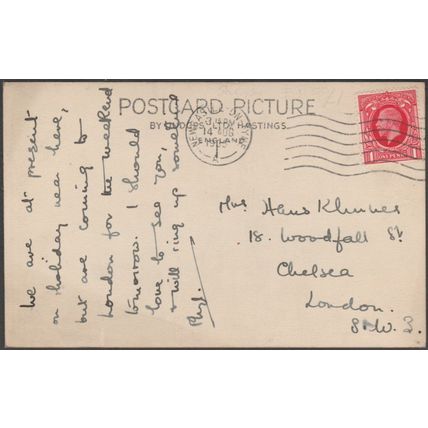 POSTCARD PICTURE
BY JUDGES LTD HASTINGS.
NEWCASTLE-ON-TYNE
ENGLAND
ONE PENNY
We are at present
on holiday near here,
but are coming to
London for the weekend
tomorrow. I should
love to see you,
will ring up sometime
Phyl.
Mrs Hans
18. Woodfall St
Chelsea
London.
S.W.3.